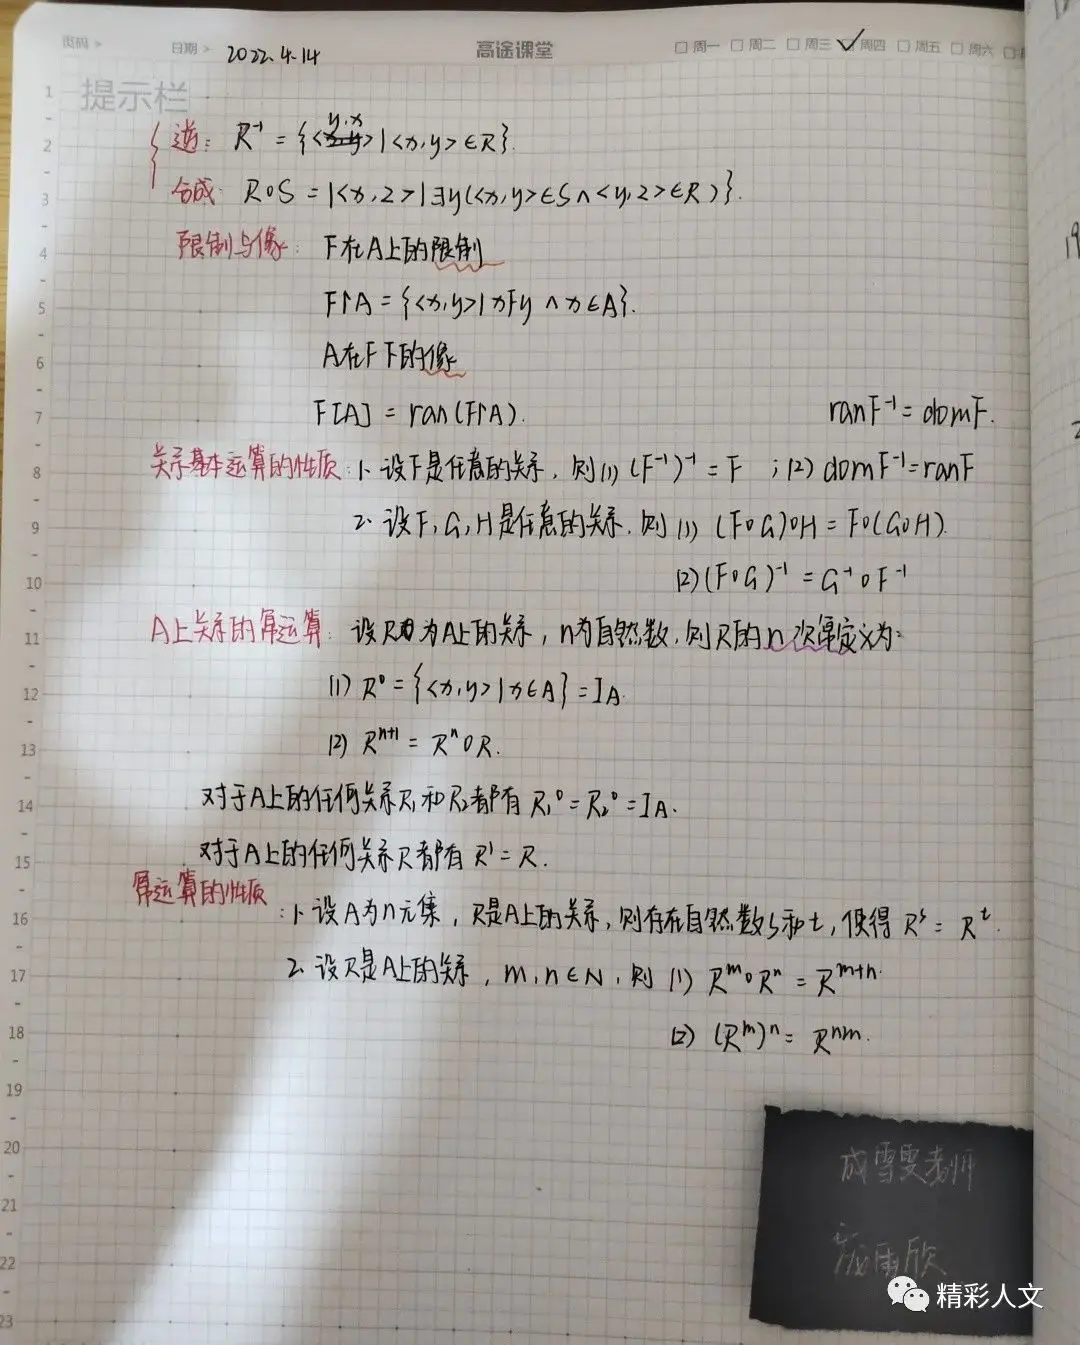 页码 > 日期 > 2022.4.14 高途课堂 □周一 □周二 □周三 ☑周四 □周五 □周六
提示栏
逆: R⁻¹ = {<y,x>|<x,y>∈R}.
合成: R∘S = |<x,z>|∃y(<x,y>∈S∧<y,z>∈R)}.
限制与像: F在A上的限制
F↾A = {<x,y>|xFy ∧ x∈A}.
A在F下的像
F[A] = ran(F↾A). ranF⁻¹ = domF.
关系基本运算的性质: 1. 设F是任意的关系, 则(1) (F⁻¹)⁻¹ = F ; (2) domF⁻¹=ranF
2. 设F, G, H是任意的关系, 则 (1) (F∘G)∘H = F∘(G∘H).
(2) (F∘G)⁻¹ = G⁻¹∘F⁻¹
A上关系的幂运算: 设R为A上的关系, n为自然数, 则R的n次幂定义为:
(1) R⁰ = {<x,y>|x∈A} = I_A.
(2) Rⁿ⁺¹ = Rⁿ∘R.
对于A上的任何关系R₁和R₂都有 R₁⁰ = R₂⁰ = I_A.
对于A上的任何关系R都有 R¹ = R.
幂运算的性质: 1. 设A为n元集, R是A上的关系, 则存在自然数s和t, 使得 Rˢ = Rᵗ.
2. 设R是A上的关系, m, n∈N, 则 (1) Rᵐ∘Rⁿ = Rᵐ⁺ⁿ.
(2) (Rᵐ)ⁿ = Rⁿᵐ.
成雪雯老师
雨欣
精彩人文